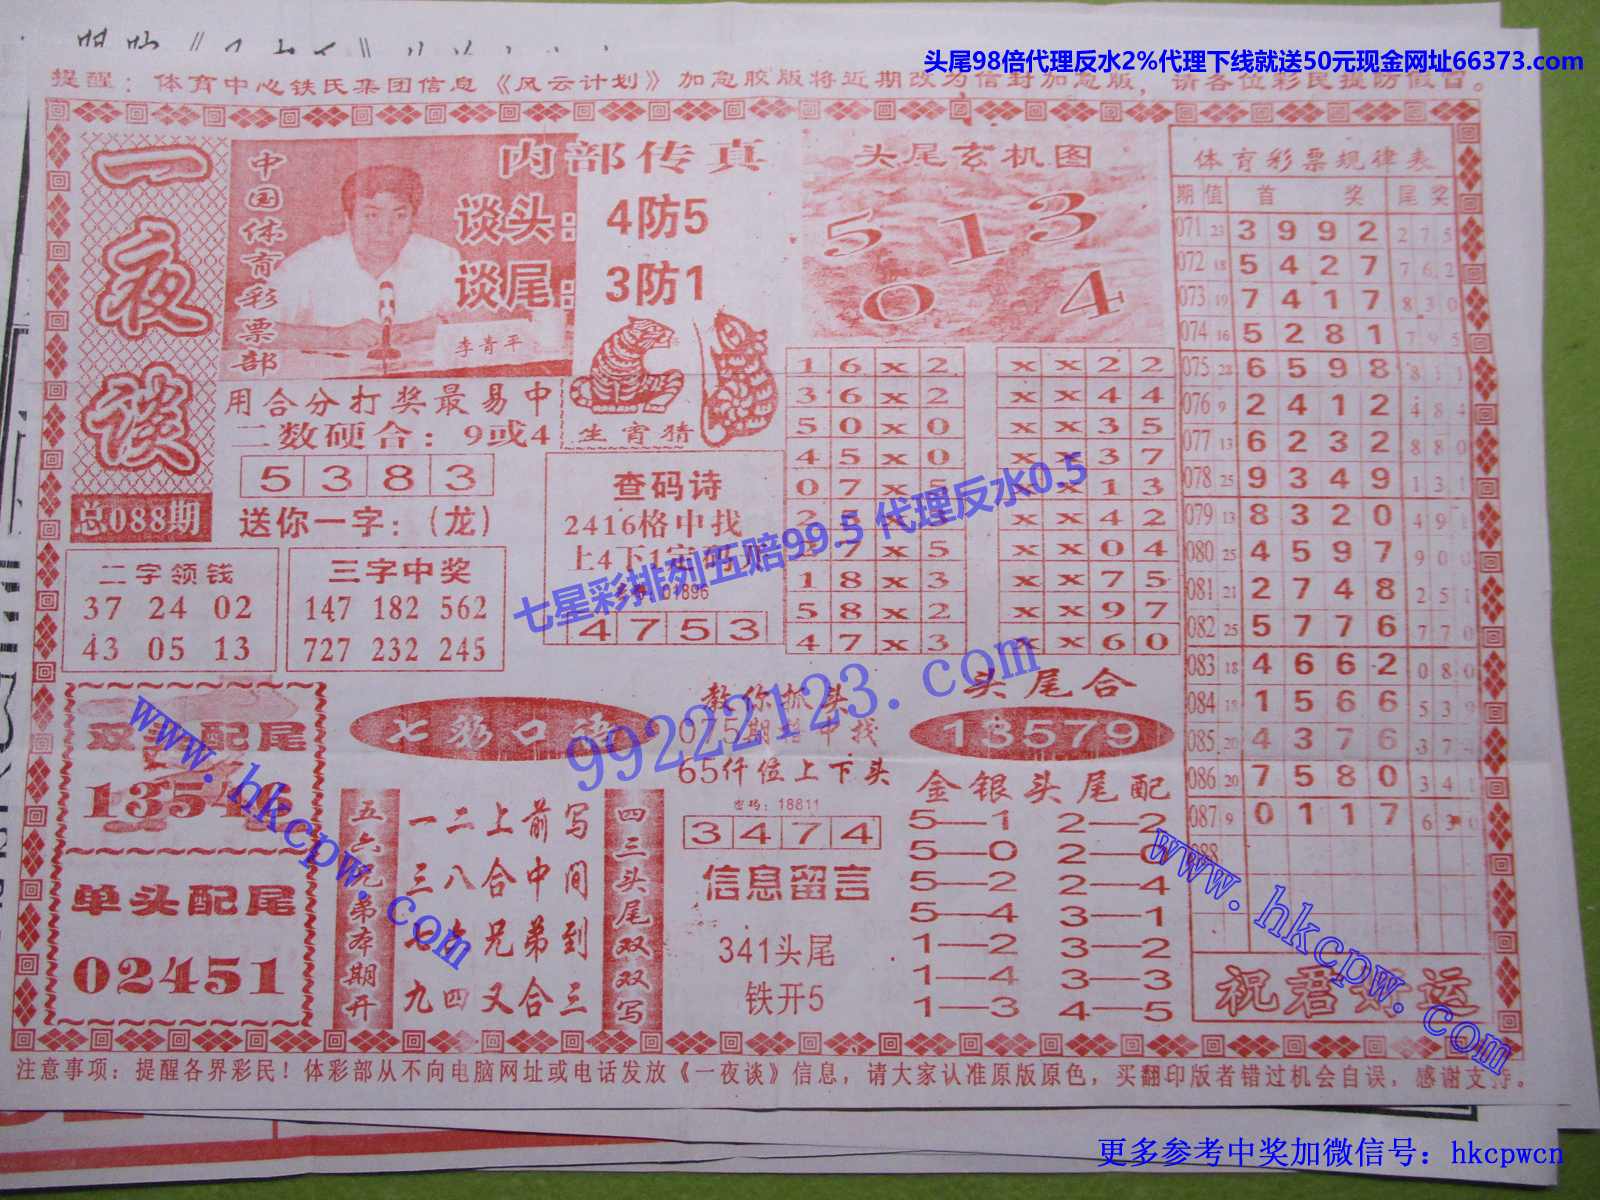 头尾98倍代理反水2%代理下线就送50元现金网址66373.com
提醒：体育中心铁氏集团信息《风云计划》加急胶版将近期改为信封加急版，请各位彩民提防假冒。
一夜谈
总088期
中国体育彩票部
内部传真
谈头：4防5
谈尾：3防1
李青平
用合分打奖最易中
二数硬合：9或4
5383
送你一字：（龙）
生肖猜
头尾玄机图
5 1 3
0 4
二字领钱
37 24 02
43 05 13
三字中奖
147 182 562
727 232 245
查码诗
2416格中找
上4下1定码
01896
4753
16x2
36x2
50x0
45x0
07x5
x7x5
18x3
58x2
47x3
xx22
xx44
xx35
xx37
xx13
xx42
xx04
xx75
xx97
xx60
七星彩排列五赔99.5 代理反水0.5
99222123.com
体育彩票规律表
期 值 首 奖 尾 奖
071 23 3 9 9 2 2 7 5
072 18 5 4 2 7 7 6 2
073 19 7 4 1 7 8 3 0
074 16 5 2 8 1 7 9 5
075 28 6 5 9 8 8 1 1
076 9 2 4 1 2 4 8 4
077 13 6 2 3 2 8 8 0
078 25 9 3 4 9 1 3 1
079 13 8 3 2 0 4 9 1
080 25 4 5 9 7 9 0 0
081 21 2 7 4 8 2 5 1
082 25 5 7 7 6 7 7 0
083 18 4 6 6 2 0 8 0
084 1 5 6 6 5 3
085 20 4 3 7 6 3 7 4
086 20 7 5 8 0 3 4 1
087 9 0 1 1 7 6 3
088
祝君好运
双头配尾
单头配尾
02451
七彩口语
五六兄弟本期开
一二上前写
三八合中间
七六兄弟到
九四又合三
四三头尾双双写
教你抓头
075期 中找
65仟位上下头
密码：18811
3474
信息留言
341头尾
铁开5
头尾合
13579
金银头尾配
5—1 2—2
5—0 2—0
5—2 2—4
5—4 3—1
1—2 3—2
1—4 3—3
1—3 4—5
www.hkcpw.com
www.hkcpw.com
注意事项：提醒各界彩民！体彩部从不向电脑网址或电话发放《一夜谈》信息，请大家认准原版原色，买翻印版者错过机会自误，感谢支持。
更多参考中奖加微信号：hkcpwcn